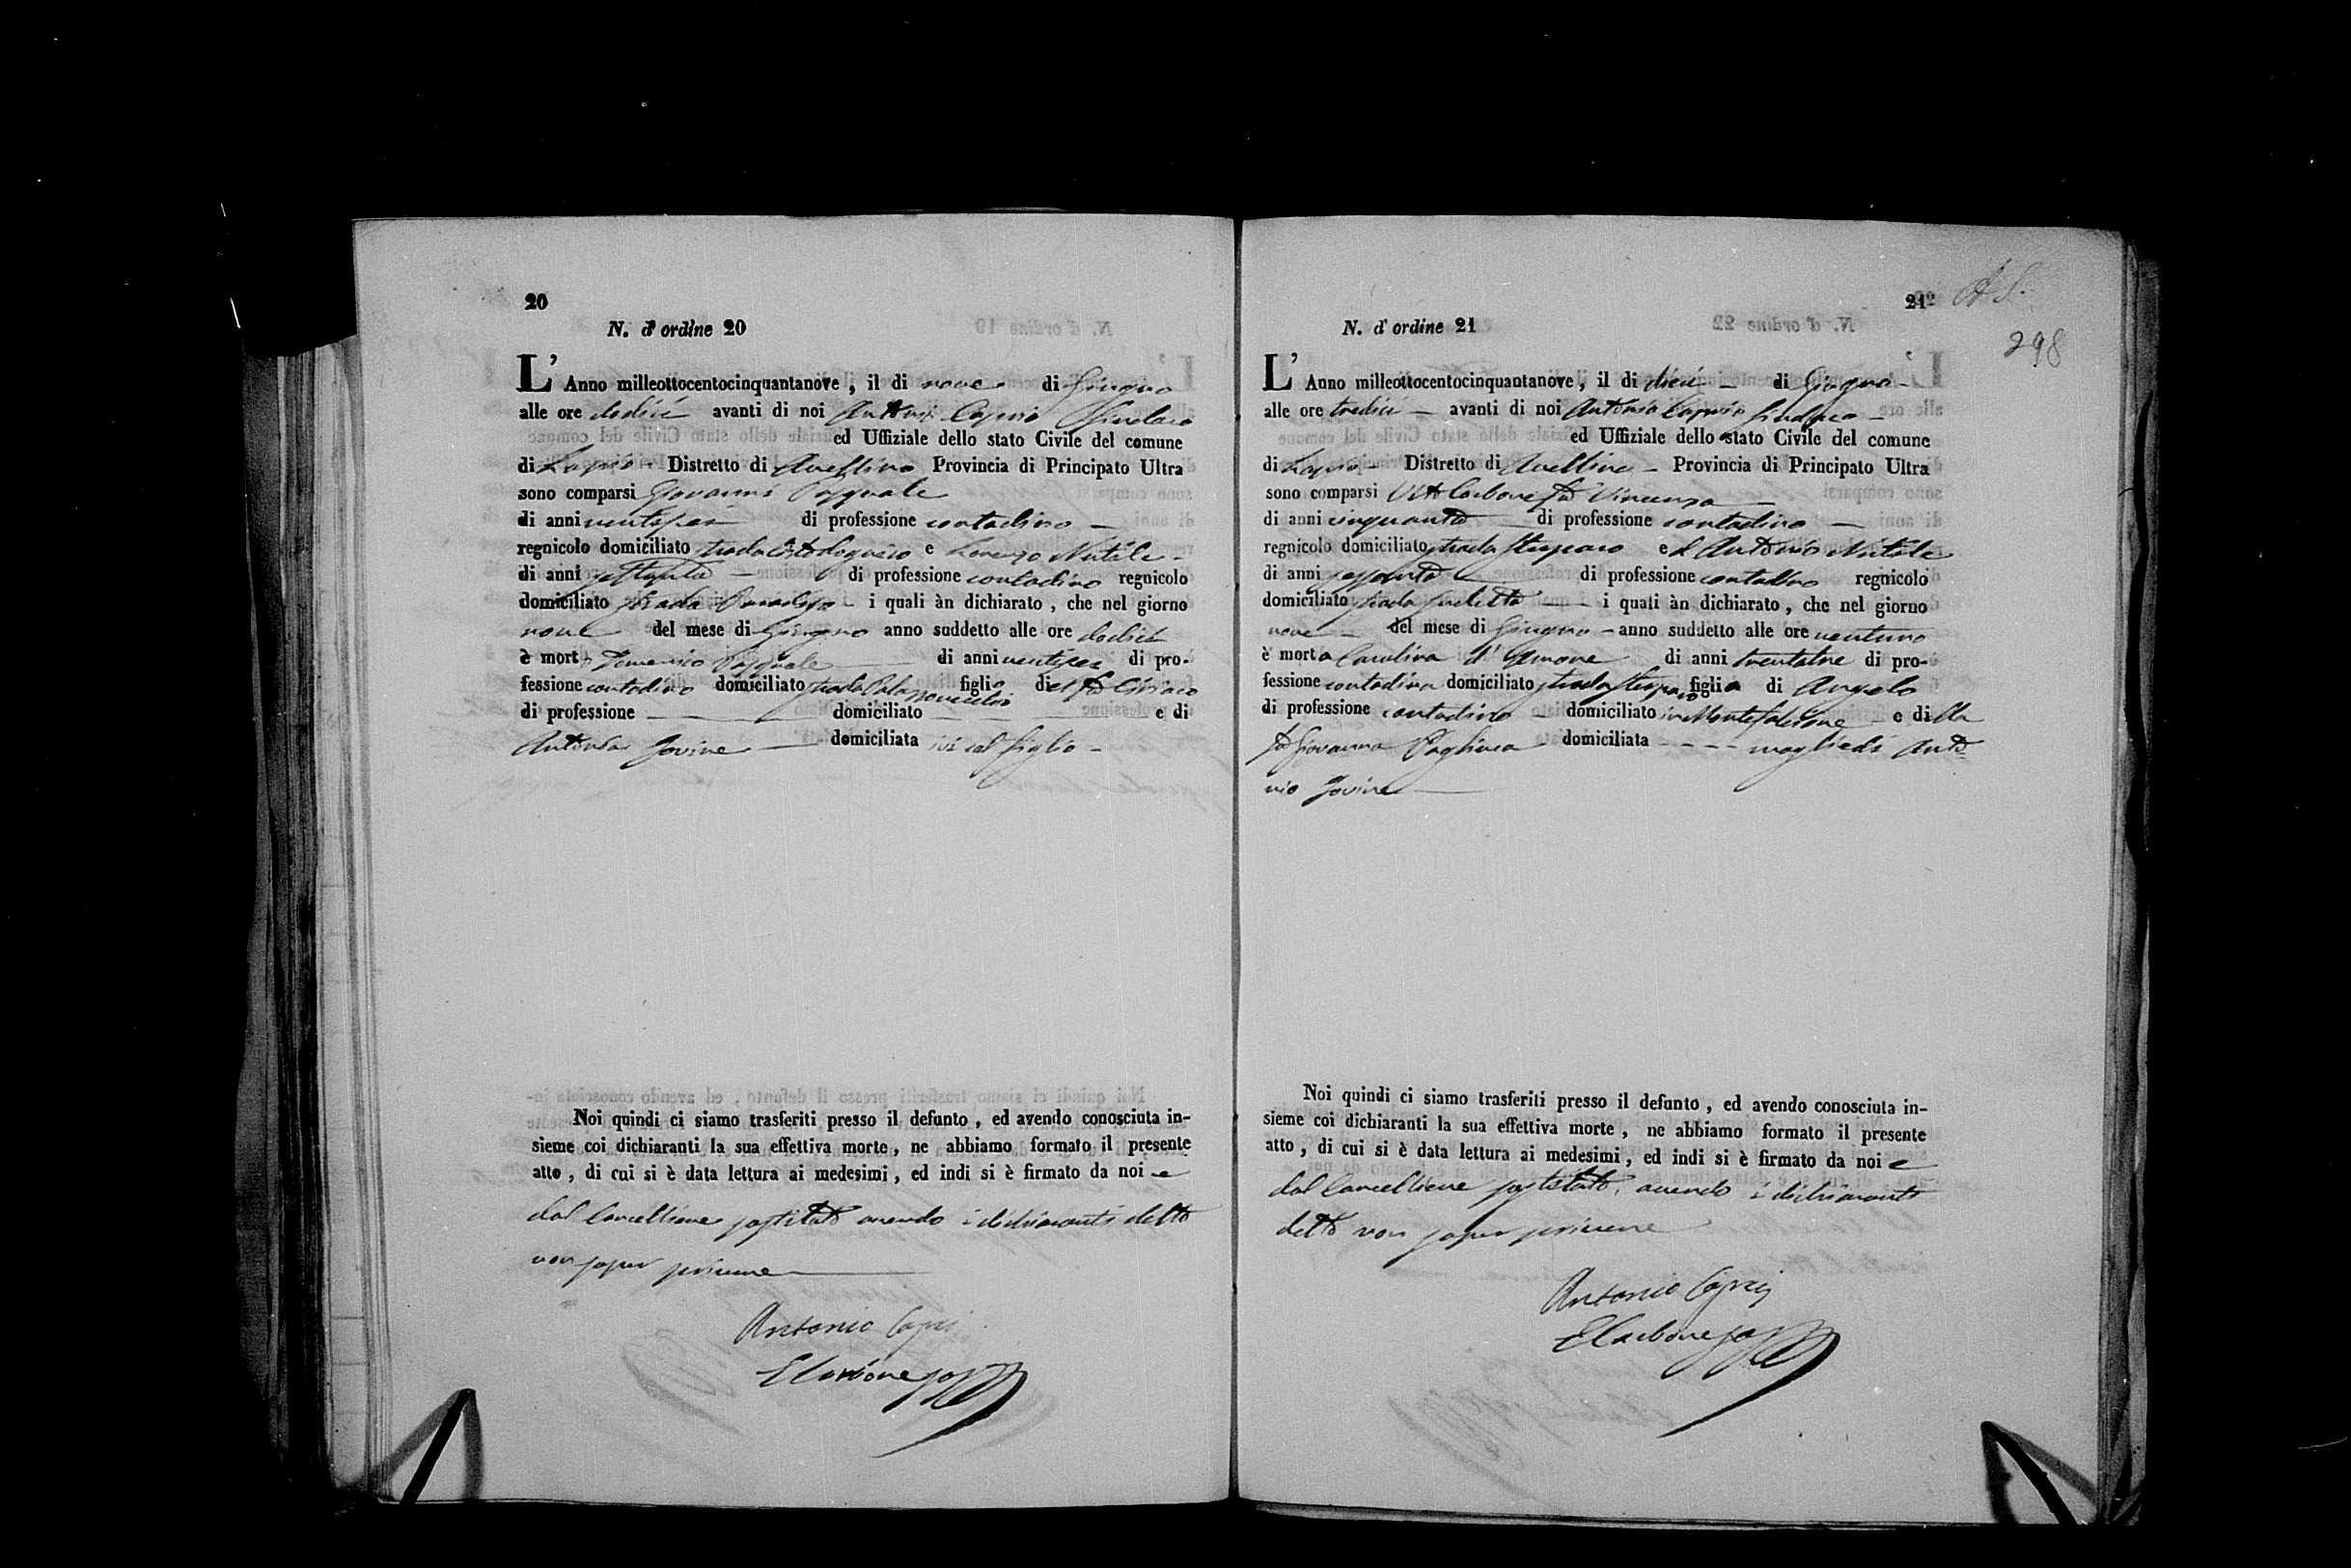 20
N. d' ordine 20
L' Anno milleottocentocinquantanove, il di nove di Giugno
alle ore dodici avanti di noi Antonio Caprio Sindaco
ed Uffiziale dello stato Civile del comune
di Lapio Distretto di Avellino Provincia di Principato Ultra
sono comparsi Giovanni Pasquale
di anni ventisei di professione contadino
regnicolo domiciliato strada e Lorenzo Natale
di anni settanta di professione contadino regnicolo
domiciliato strada i quali àn dichiarato, che nel giorno
nove del mese di Giugno anno suddetto alle ore dodici
è morto Domenico Pasquale di anni ventisei di pro-
fessione contadino domiciliato strada figlio del fu Ciriaco
di professione domiciliato e di
Antonia Jovine domiciliata ivi col figlio
Noi quindi ci siamo trasferiti presso il defunto, ed avendo conosciuta in-
sieme coi dichiaranti la sua effettiva morte, ne abbiamo formato il presente
atto, di cui si è data lettura ai medesimi, ed indi si è firmato da noi e
dal Cancelliere sostituto avendo i dichiaranti detto
non saper scrivere
Antonio Caprio
E Carbone
21
298
N. d' ordine 21
L' Anno milleottocentocinquantanove, il di dieci di Giugno
alle ore tredici avanti di noi Antonio Caprio Sindaco
ed Uffiziale dello stato Civile del comune
di Lapio Distretto di Avellino Provincia di Principato Ultra
sono comparsi Vito Carbone fu Vincenzo
di anni cinquanta di professione contadino
regnicolo domiciliato strada ed Antonio Natale
di anni sessanta di professione contadino regnicolo
domiciliato strada sudetta i quali àn dichiarato, che nel giorno
nove del mese di Giugno anno suddetto alle ore ventuno
è morta Carolina d' Amore di anni trentatre di pro-
fessione contadina domiciliato strada figlia di Angelo
di professione contadino domiciliato in Montefalcione e di lla
fu Giovanna Pagliuca domiciliata moglie di Anto
nio Jovine
Noi quindi ci siamo trasferiti presso il defunto, ed avendo conosciuta in-
sieme coi dichiaranti la sua effettiva morte, ne abbiamo formato il presente
atto, di cui si è data lettura ai medesimi, ed indi si è firmato da noi e
dal Cancelliere sostituto, avendo i dichiaranti
detto non saper scrivere
Antonio Caprio
E Carbone